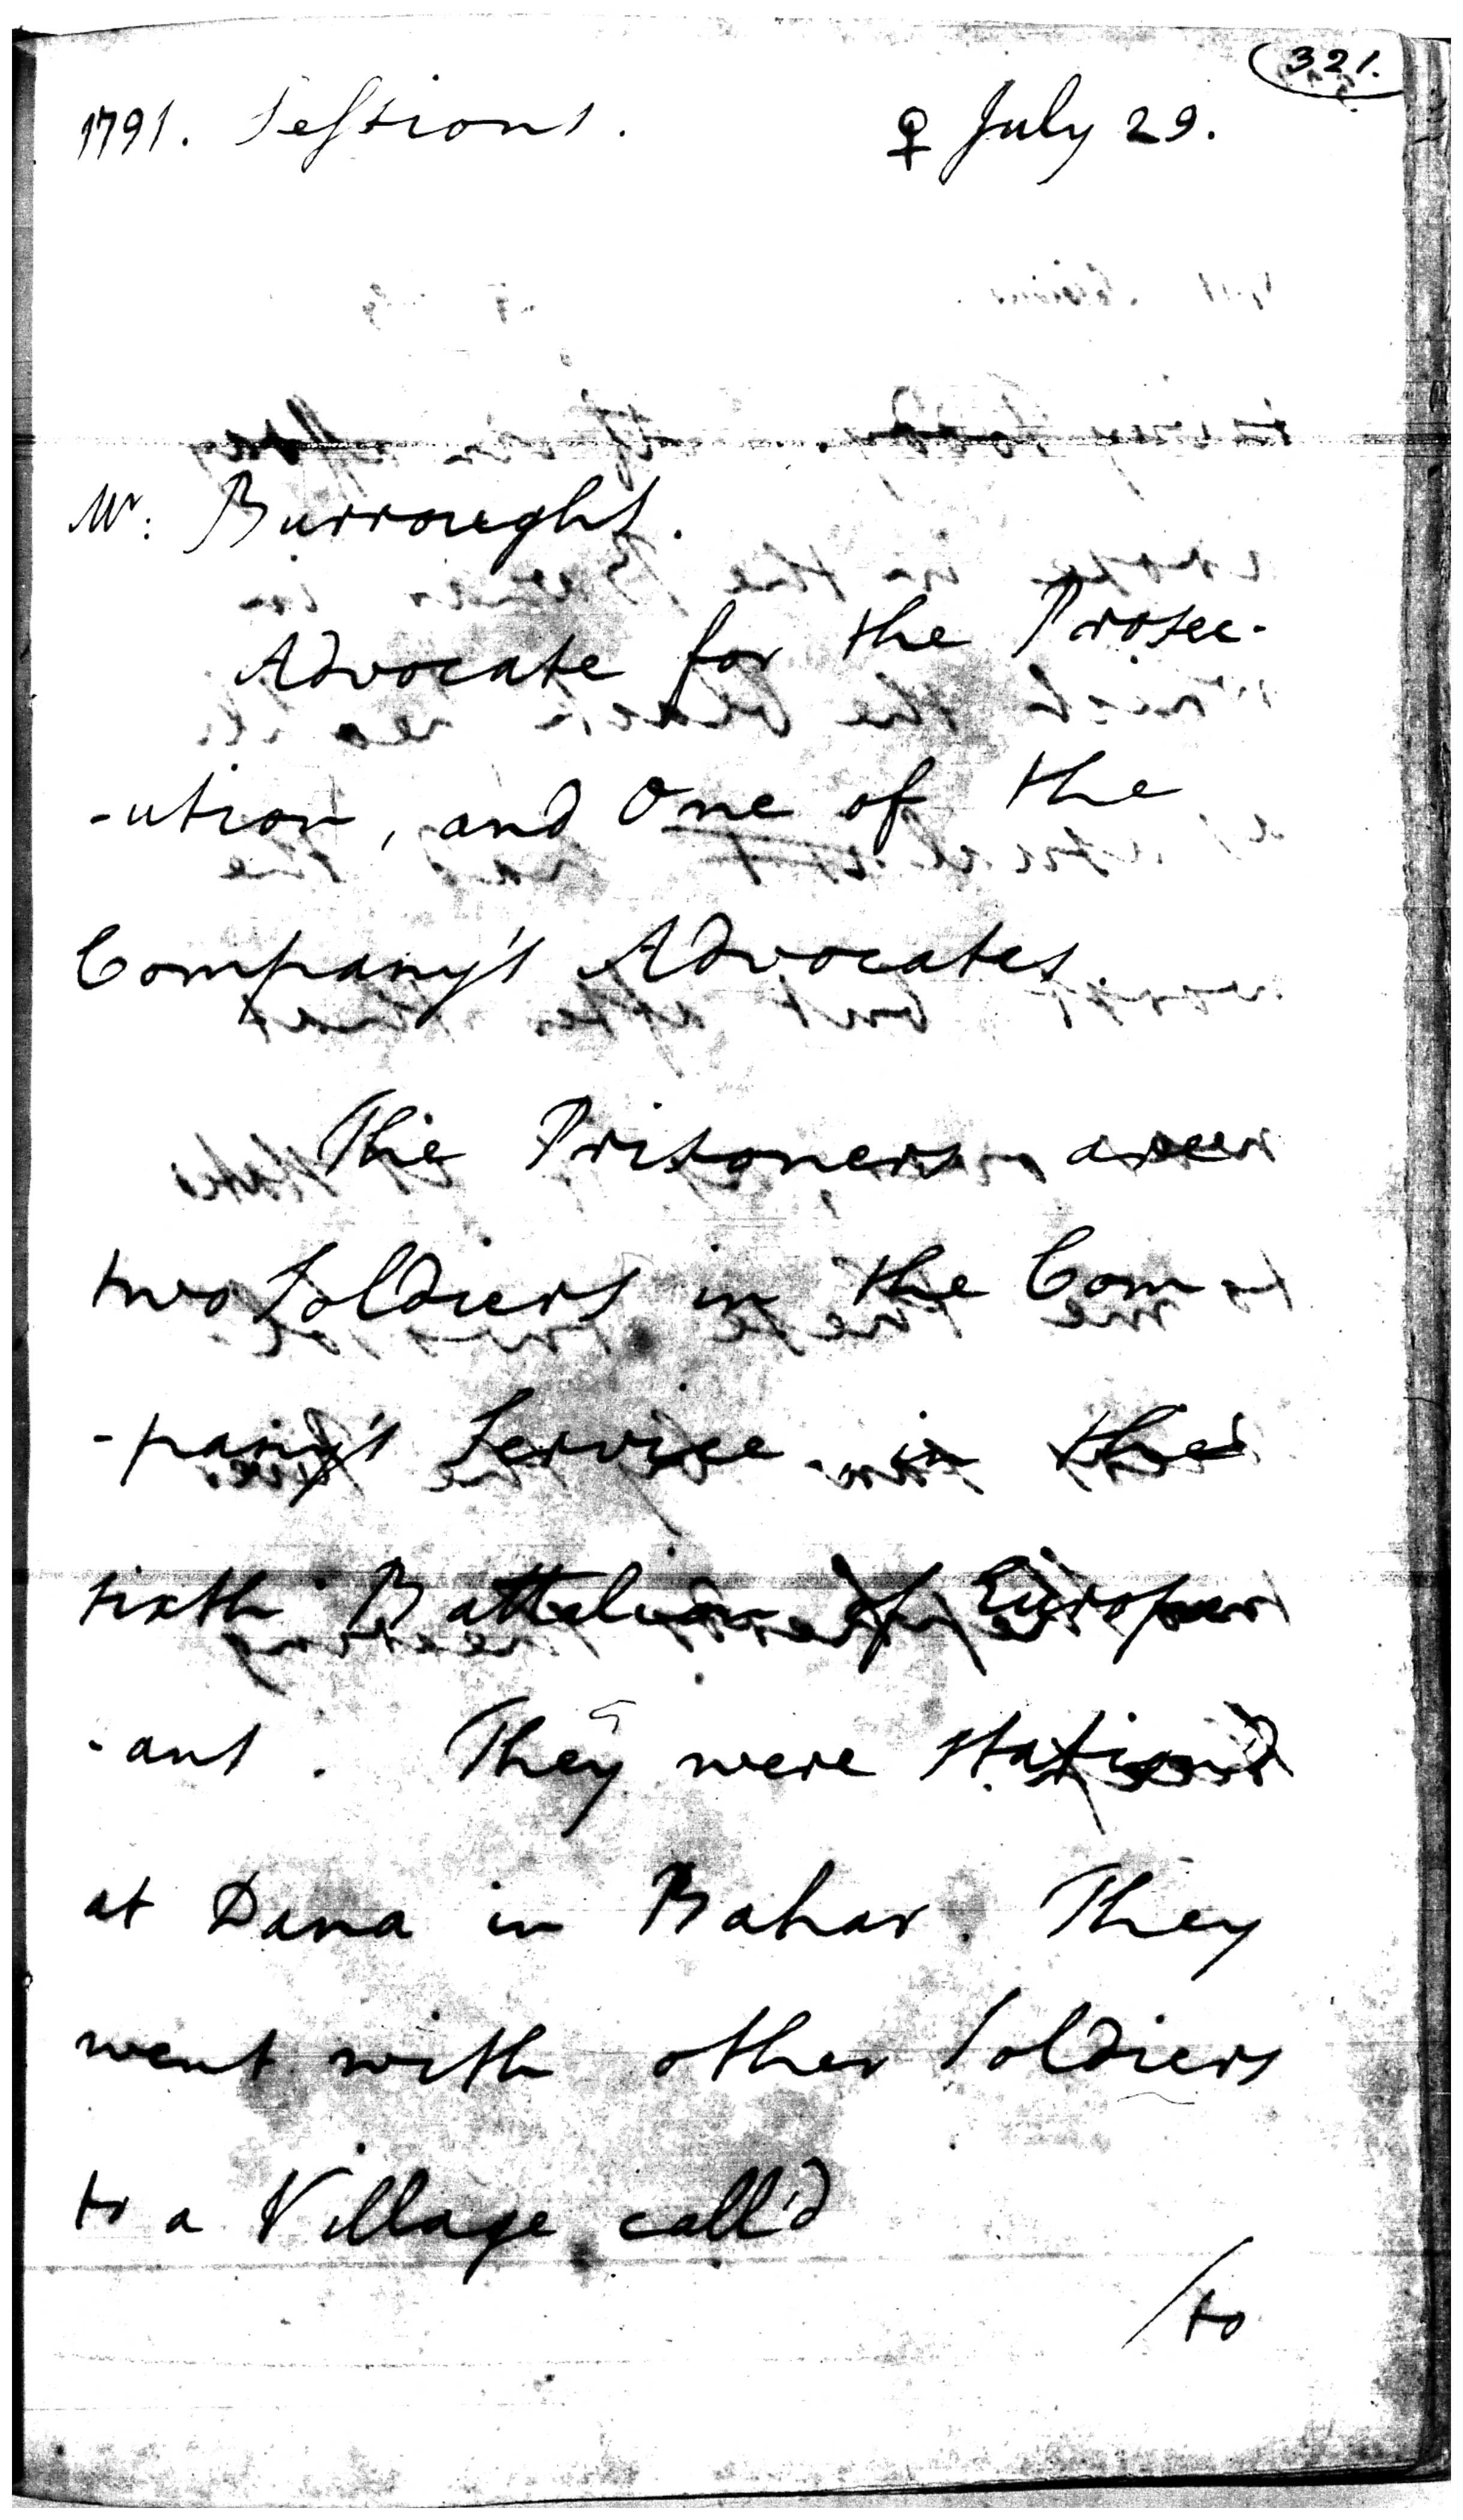 321.
1791. Sessions. ♀ July 29.
Mr: Burroughs.
Advocate for the Prosec-
-ution, and One of the
Company's Advocates.
The Prisoners are
two Soldiers in the Com-
-pany's Service in the
sixth Battalion of Europe-
-ans. They were station'd
at Dana in Bahar. They
went with other Soldiers
to a Village call'd
/to